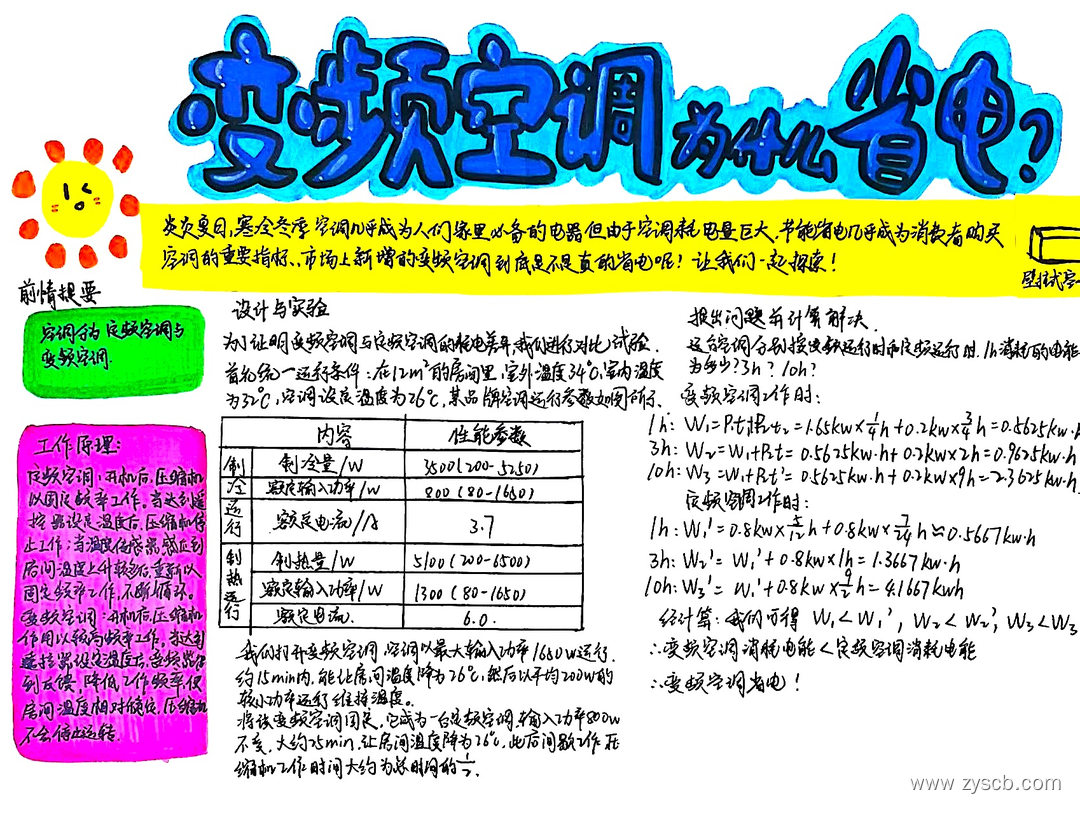 变频空调为什么省电？
炎炎夏日，寒冷冬季空调几乎成为人们家里必备的电器但由于空调耗电量巨大，节能省电几乎成为消费者购买
空调的重要指标、市场上新增的变频空调到底是不是真的省电呢！让我们一起探索！
壁挂式空
前情提要
空调分为定频空调与
变频空调
工作原理：
定频空调：开机后，压缩机
以固定频率工作。当达到遥
控器设定温度后，压缩机停
止工作；当温度传感器感应到
房间温度上升较多后，重新以
固定频率工作，不断循环。
变频空调：开机后，压缩机
作用以较高频率工作。当达到
遥控器设定温度后，变频器得
到反馈，降低工作频率，使
房间温度相对稳定，压缩机
不会停止运转
设计与实验
为了证明变频空调与定频空调的耗电差异，我们进行对比试验．
首先统一运行条件：在12m²的房间里，室外温度34℃，室内温度
为32℃，空调设定温度为26℃，某品牌空调运行参数如图所示、
内容 性能参数
制冷运行
制冷量/W 3500(200-5250)
额定输入功率/W 800(80-1650)
额定电流/A 3.7
制热运行
制热量/W 5100(200-6500)
额定输入功率/W 1300(80-1650)
额定电流 6.0.
我们打开变频空调，空调以最大输入功率1650w运行．
约15min内，能让房间温度降为26℃，然后以平均200w的
较小功率运行维持温度。
将该变频空调固定，它成为一台定频空调，输入功率800w
不变，大约25min，让房间温度降为26℃，此后间歇工作压
缩机工作时间大约为总时间的½．
提出问题并计算解决．
这台空调分别按变频运行时和定频运行时，1h消耗的电能
为多少？3h？10h？
变频空调工作时：
1h：W₁=P₁t₁+P₂t₂=1.65kw×¼h+0.2kw×¾h=0.5625kw·h
3h：W₂=W₁+P₂t=0.5625kw·h+0.2kw×2h=0.9625kw·h
10h：W₃=W₁+P₂t'=0.5625kw·h+0.2kw×9h=2.3625kw·h
定频空调工作时：
1h：W₁'=0.8kw×5/12h+0.8kw×7/24h≈0.5667kw·h
3h：W₂'=W₁'+0.8kw×1h=1.3667kw·h
10h：W₃'=W₁'+0.8kw×9/2h=4.1667kwh
经计算：我们可得 W₁<W₁'，W₂<W₂'，W₃<W₃
∴变频空调消耗电能<定频空调消耗电能
∴变频空调省电！
www.zyscb.com